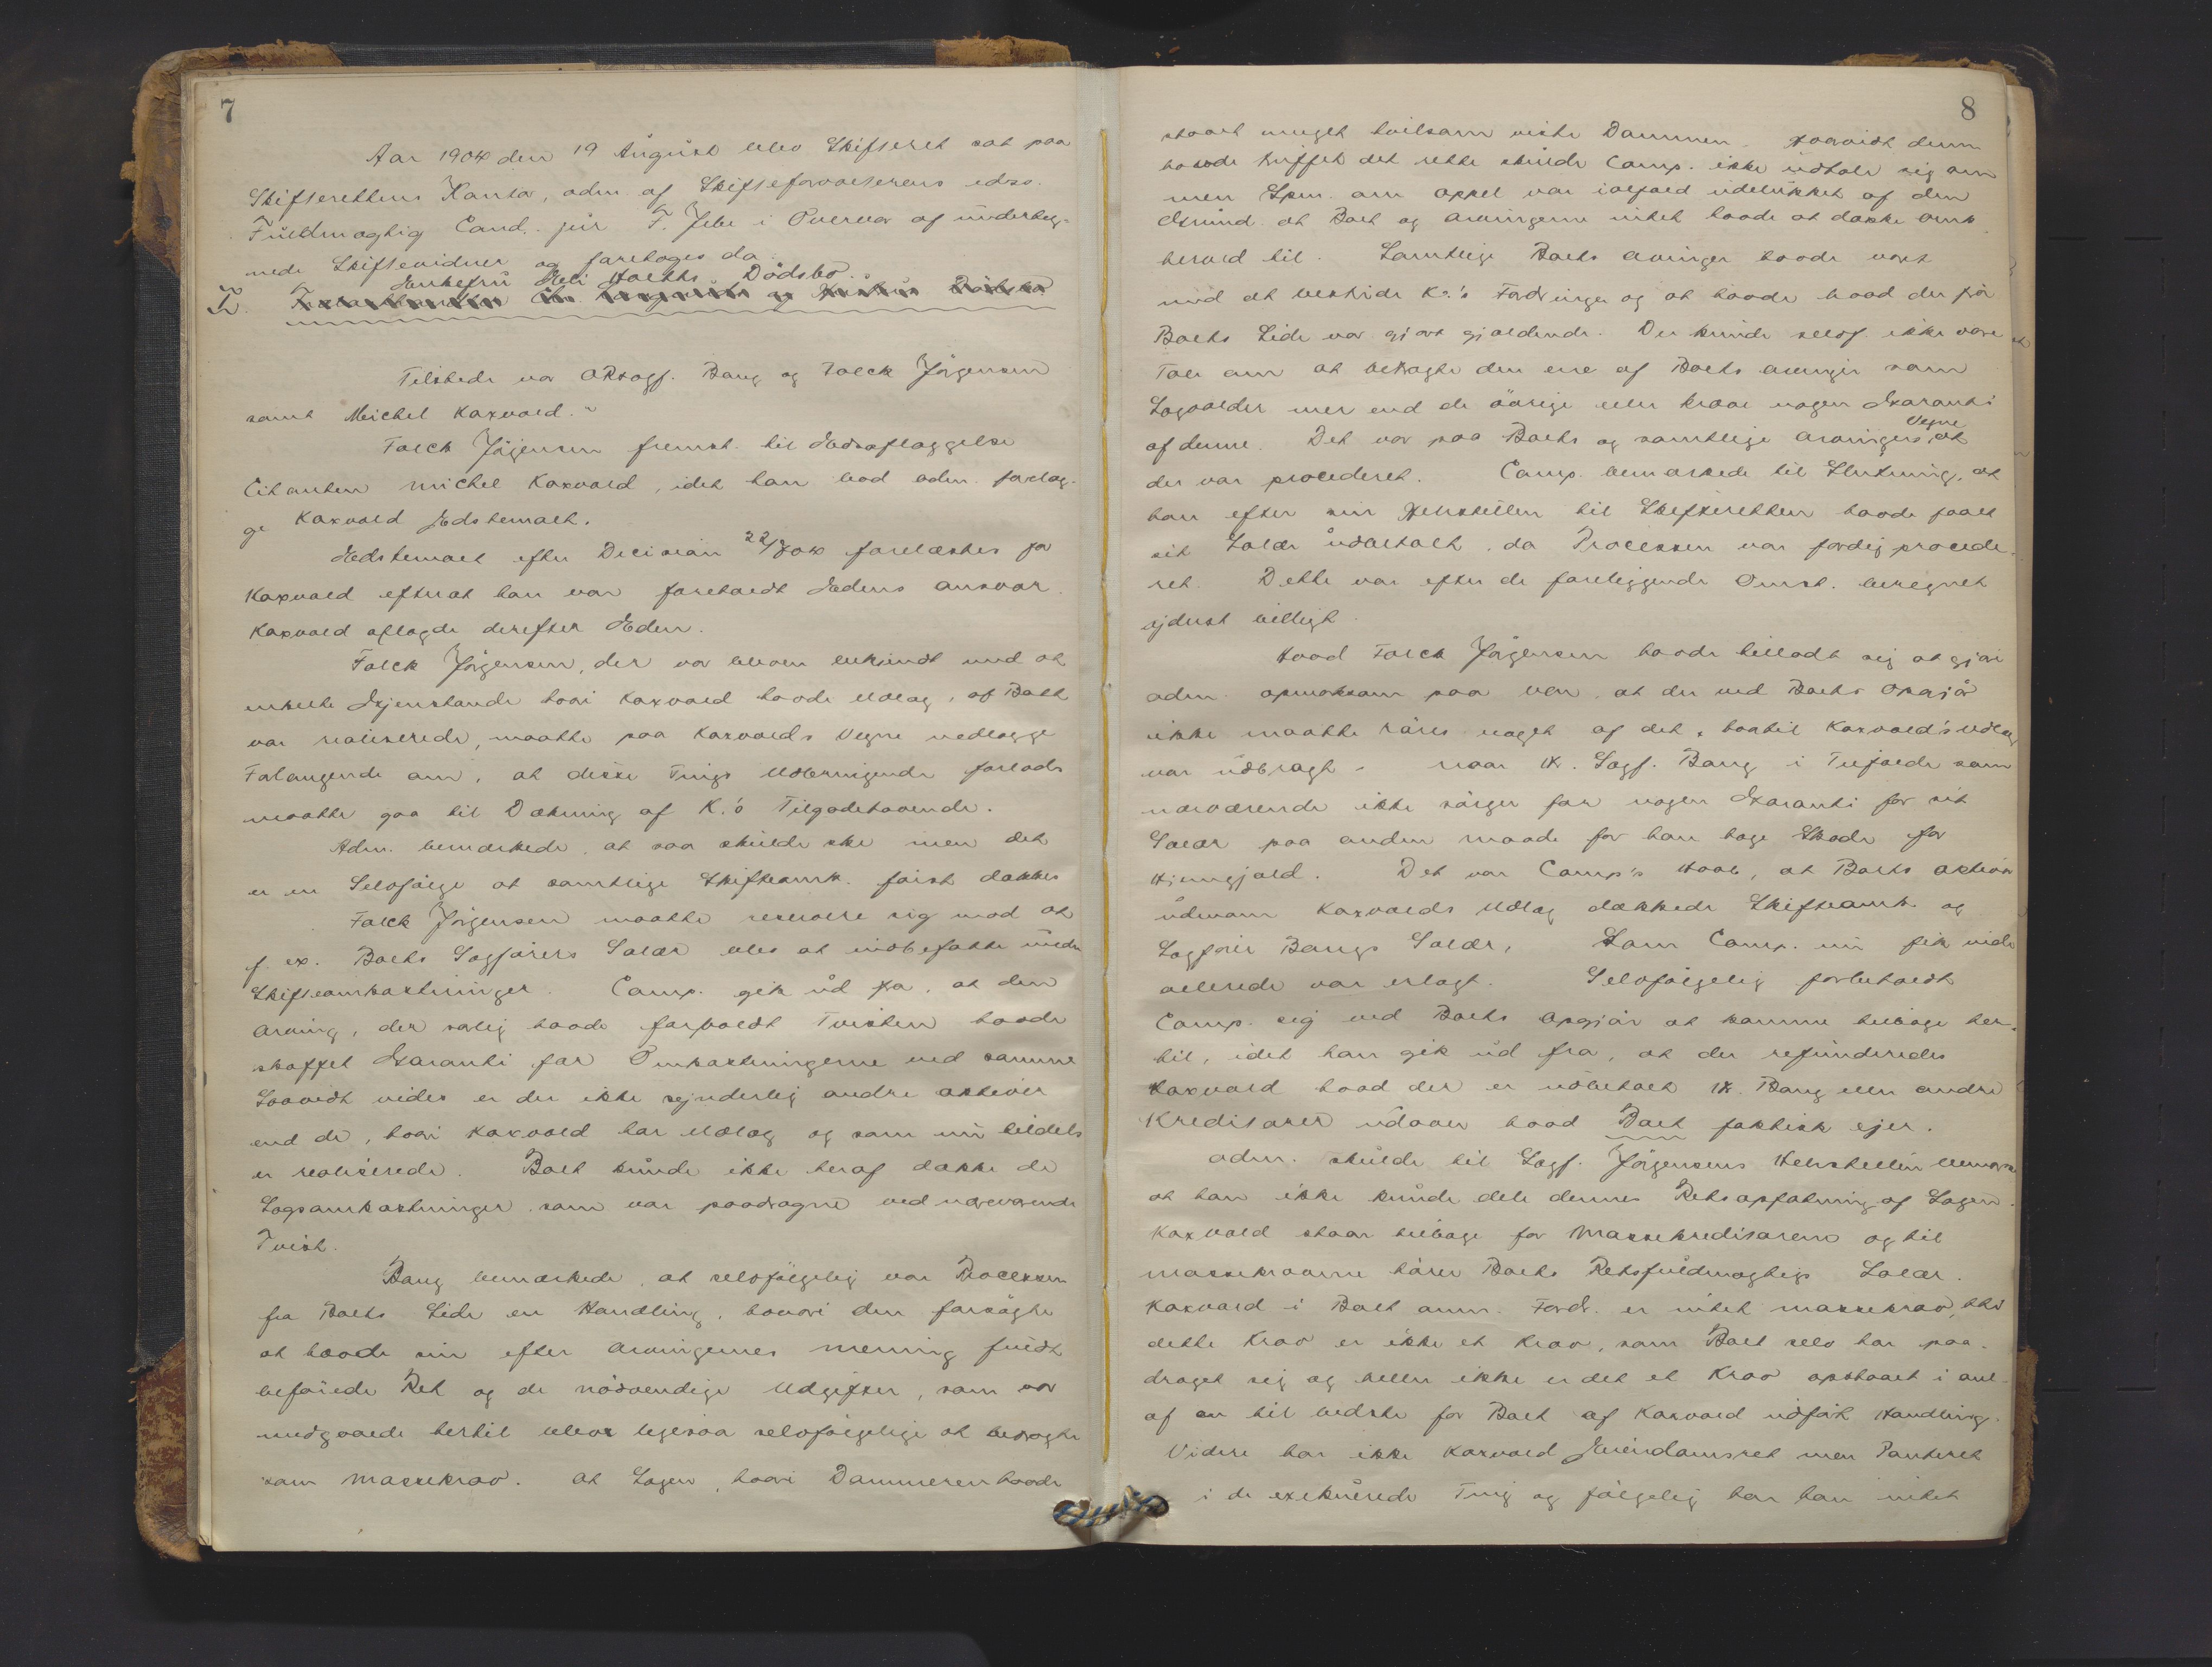 7
Aar 1904 den 19 August blev Skifteret sat paa
Skifterettens Kontor, adm. af Skifteforvalterens edsv.
Fuldmægtig Cand. jur F. Jebe i Overvær af underteg-
nede Skiftevidner og foretoges da:
Enkefru Holths Dødsbo.
Tilstede var ORsagf. Bang og Falck Jørgensen
samt Michel Kaxvold.
Falck Jørgensen fremst. til Edsaflæggelse
Citanten Michel Kaxvold, idet han bad adm. forelæg-
ge Kaxvold Edstemaet.
Edstemaet efter Decision 22/7 04 forelæstes for
Kaxvold efterat han var foreholdt Edens Ansvar.
Kaxvold aflagde derefter Eden.
Falck Jørgensen, der var bleven bekjendt med at
enkelte Gjenstande hvori Kaxvold havde Udlæg, af Boet
var realiserede, maatte paa Kaxvolds Vegne nedlægge
Forlangende om, at disse Tings Udbringende forlods
maatte gaa til Dækning af K.'s Tilgodehavende.
Adm. bemærkede, at saa skulde ske men det
er en Selvfølge at samtlige Skifteomk. først dækkes
Falck Jørgensen maatte reservere sig mod at
f. ex. Boets Sagførers Salær blev at indbefatte under
Skifteomkostninger. Comp. gik ud fra, at den
Arving, der særlig havde forvoldt Tvisten havde
skaffet Garanti for Omkostningerne ved samme
Saavidt vides er der ikke synderlig andre Aktiver
end de, hvori Kaxvold har Udlæg og som nu tildels
er realiserede. Boet kunde ikke heraf dække de
Sagsomkostninger som var paadragne ved nærværende
Tvist.
Bang bemærkede, at selvfølgelig var Processen
fra Boets Side en Handling, hvori den forsøgte
at hævde sin efter Arvingernes Mening fuldt
beføiede Ret og de nødvendige Udgifter, som var
medgaaede hertil blev ligesaa selvfølgelige at betragte
som Massekrav. At Sagen, hvori Dommeren havde
8
staaet meget tvilsom viste Dommen. Hvorvidt denne
havde truffet det rette skulde Comp. ikke udtale sig om
men Spm. om Appel var ialfald udelukket af den
Grund at Boet og Arvingerne intet havde at dække Omk.
herved til. Samtlige Boets Arvinger havde vært
med at bestride K.'s Fordringer og at hævde hvad der fra
Boets Side var gjort gjældende. Der kunde selvf. ikke være
Tale om at betragte den ene af Boets Arvinger som
Sagvolder mer end de øvrige eller kræve nogen Garanti
af denne. Det var paa Boets og samtlige Arvingers Vegne at
der var procederet. Comp. bemærkede til Slutning, at
han efter sin Henstillen til Skifteretten havde faaet
sit Salær udbetalt, da Processen var færdig procede-
ret. Dette var efter de foreliggende Omst. beregnet
yderst billigt.
Hvad Falck Jørgensen havde tilladt sig at gjøre
adm. opmærksom paa var, at der ved Boets Opgjør
ikke maatte røres noget af det, hvortil Kaxvold's Udlæg
var udbragt. Naar Hr. Sagf. Bang i Tilfælde som
nærværende ikke sørger for nogen Garanti for sit
Salær paa anden Maade får han tage Skade for
Hjemgjæld. Det var Comp's Haab, at Boets Aktiva
udenom Kaxvolds Udlæg dækkede Skifteomk. og
Sagfører Bangs Salær, som Comp. nu fik vide
allerede var erlagt. Selvfølgelig forbeholdt
Comp. sig ved Boets Opgjør at komme tilbage her-
til, idet han gik ud fra, at der refunderedes
Kaxvold hvad der er udbetalt Hr. Bang eller andre
Kreditorer udover hvad Boet faktisk ejer.
Adm. skulde til Sagf. Jørgensens Henstillen bemærke
at han ikke kunde dele dennes Retsopfatning af Sagen.
Kaxvold staar tilbage for Massekreditorerne og til
Massekravene hører Boets Retsfuldmægtigs Salær.
Kaxvold i Boet anm. Fordr. er intet Massekrav, thi
dette Krav er ikke et Krav, som Boet selv har paa-
draget sig og heller ikke er det et Krav opstaaet i Anl.
af en til bedste for Boet af Kaxvold udført Handling.
Videre har ikke Kaxvold Eiendomsret men Panteret
i de exekverede Ting og følgelig har han intet